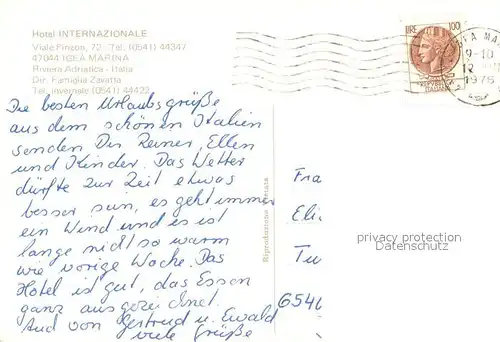 Hotel INTERNAZIONALE
Viale Pinzon, 72 - Tel. (0541) 44347
47044 IGEA MARINA
Riviera Adriatica - Italia
Dir. Famiglia Zavatta
Tel. invernale (0541) 44422
LIRE 100
ITALIANE
EA MA
9-10
1976
Die besten Urlaubsgrüße
aus dem schönen Italien
senden Dir Reiner, Ellen
und Kinder. Das Wetter
dürfte zur Zeit etwas
besser sein, es geht immer
ein Wind und es ist
lange nicht so warm
wie vorige Woche. Das
Hotel ist gut, das Essen
ganz ausgezeichnet.
Auch von Gertrud u. Ewald
viele Grüße
Riproduzione vietata
Fra
Eli
Tu
privacy protection
Datenschutz
654